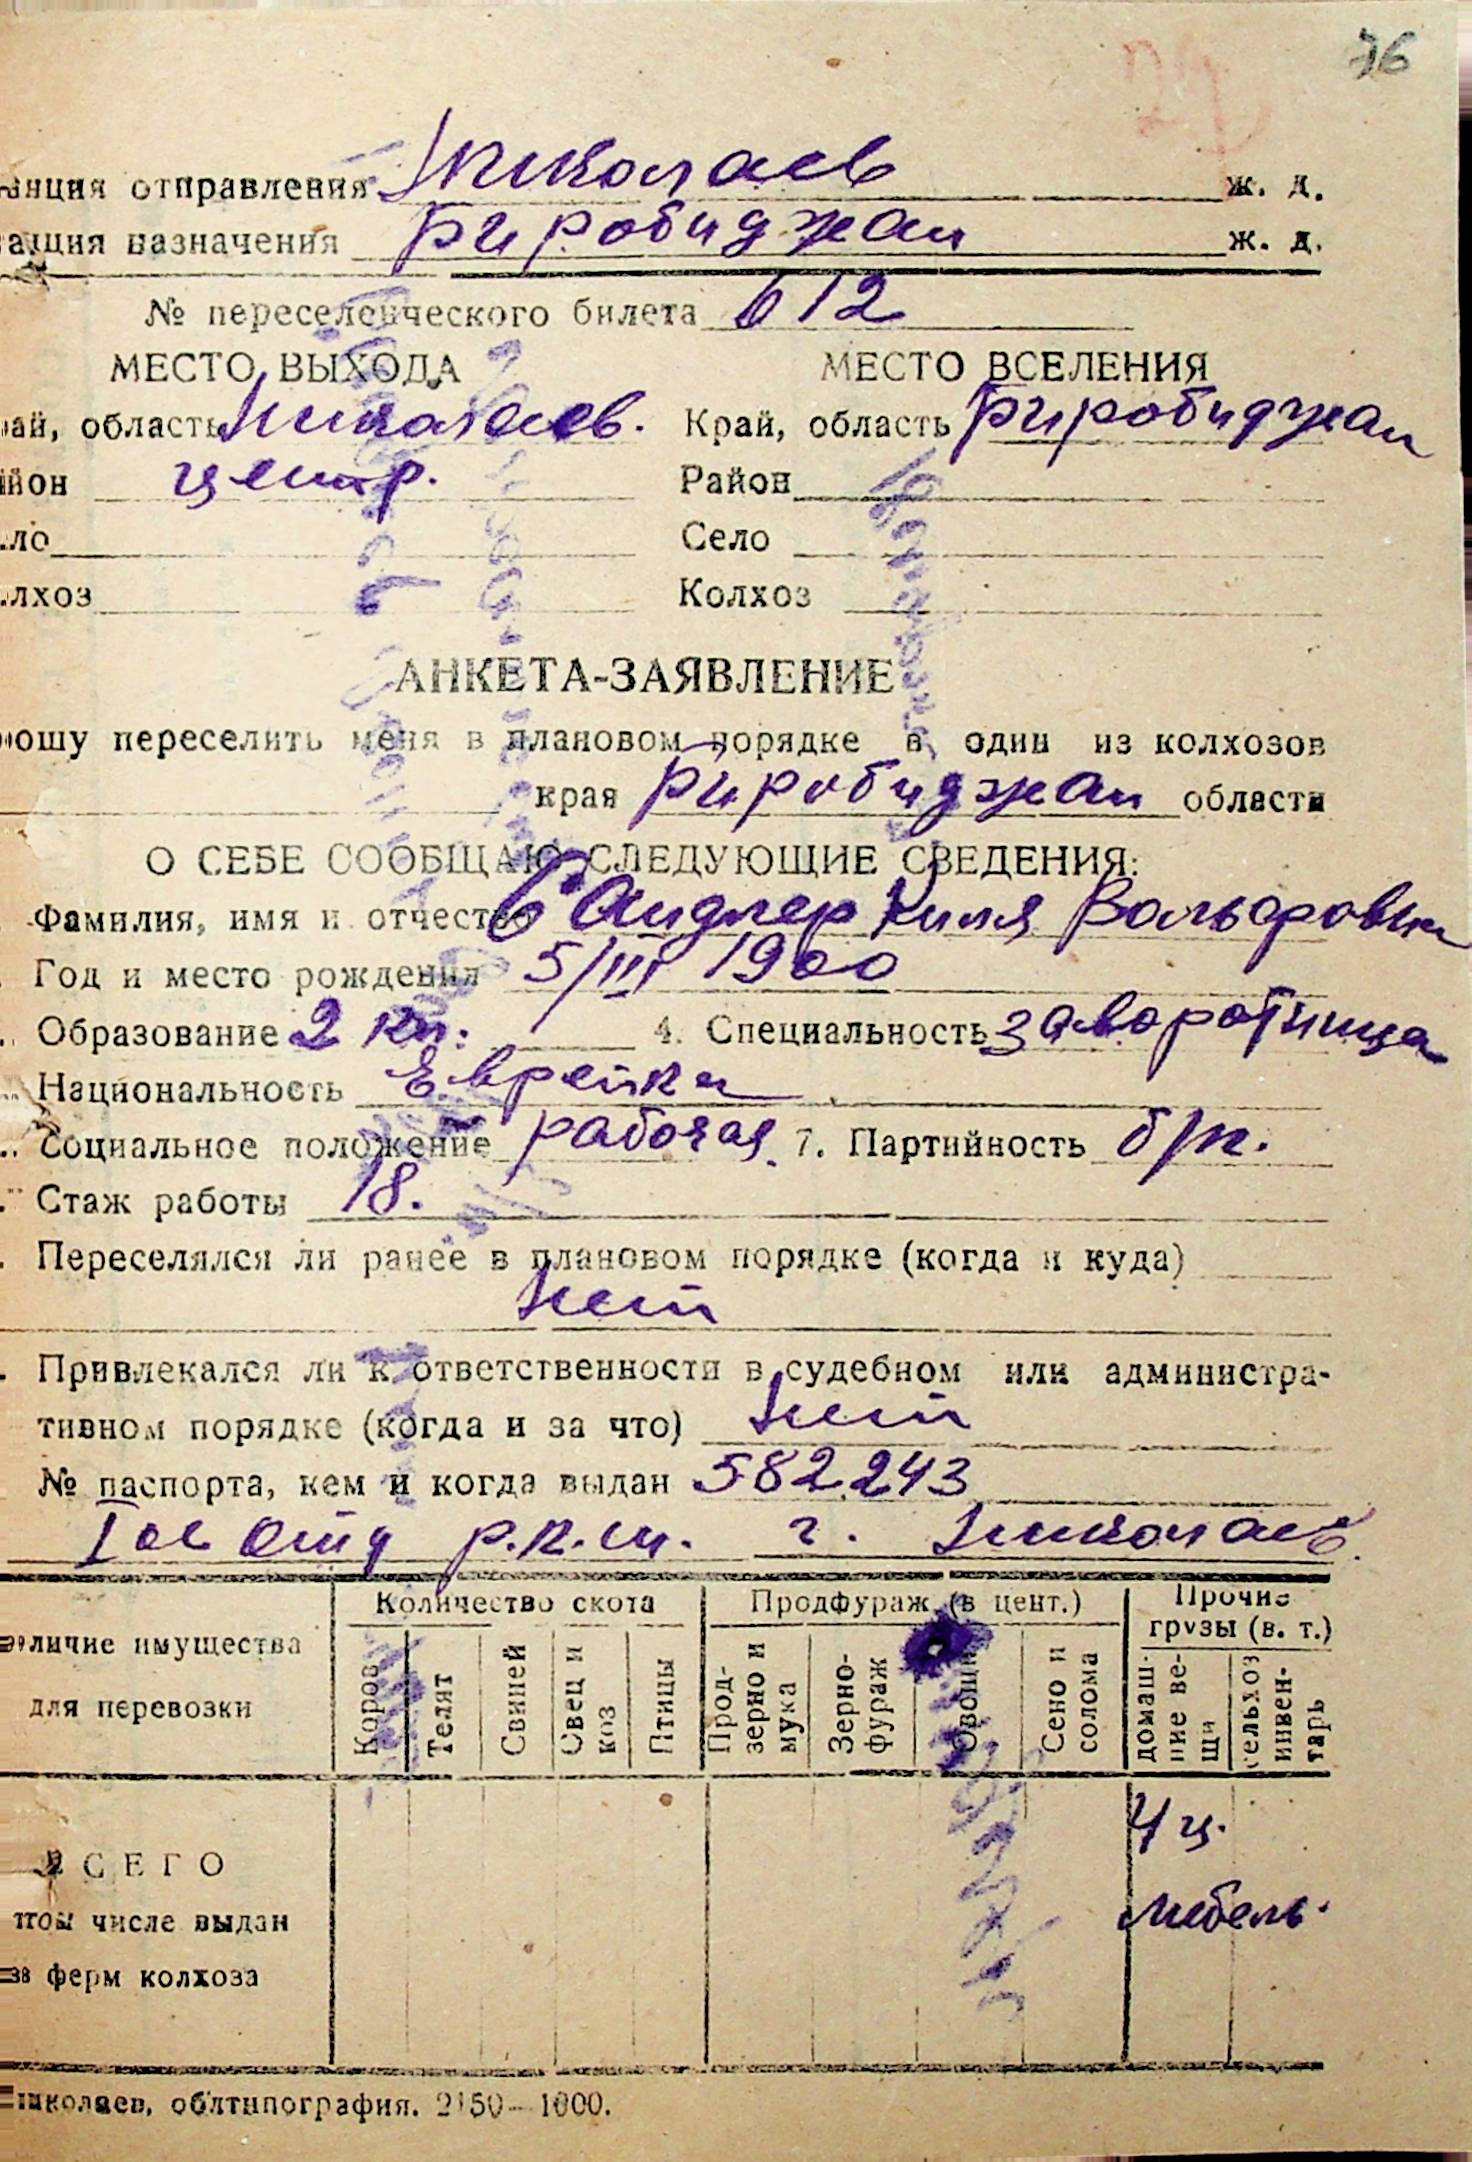 76
анция отправления Николаев ж. д.
анция назначения Биробиджан ж. д.
№ переселенческого билета 612
МЕСТО ВЫХОДА МЕСТО ВСЕЛЕНИЯ
рай, область Николаев. Край, область Биробиджан
йон центр. Район
ло Село
лхоз Колхоз
АНКЕТА-ЗАЯВЛЕНИЕ
рошу переселить меня в плановом порядке в один из колхозов
края Биробиджан области
О СЕБЕ СООБЩАЮ СЛЕДУЮЩИЕ СВЕДЕНИЯ:
Фамилия, имя и отчество Сандлер Киля Вольфовна
Год и место рождения 5/III 1900
Образование 2 кл. 4. Специальность заворотница
Национальность Еврейка
Социальное положение рабочая 7. Партийность б/п.
Стаж работы 18.
Переселялся ли ранее в плановом порядке (когда и куда)
Нет
Привлекался ли к ответственности в судебном или администра-
тивном порядке (когда и за что) Нет
№ паспорта, кем и когда выдан 582243
Iое Отд р.к.м. г. Николаев.
аличие имущества
для перевозки
Количество скота
Продфураж (в цент.)
Прочие
грузы (в. т.)
Коров
Телят
Свиней
Овец и
коз
Птицы
Прод-
зерно и
мука
Зерно-
фураж
Овощи
Сено и
солома
домаш-
ние ве-
щи
сельхоз
инвен-
тарь
ВСЕГО
том числе выдан
ферм колхоза
4 ц.
мебель.
николаев, облтипография. 2150—1000.